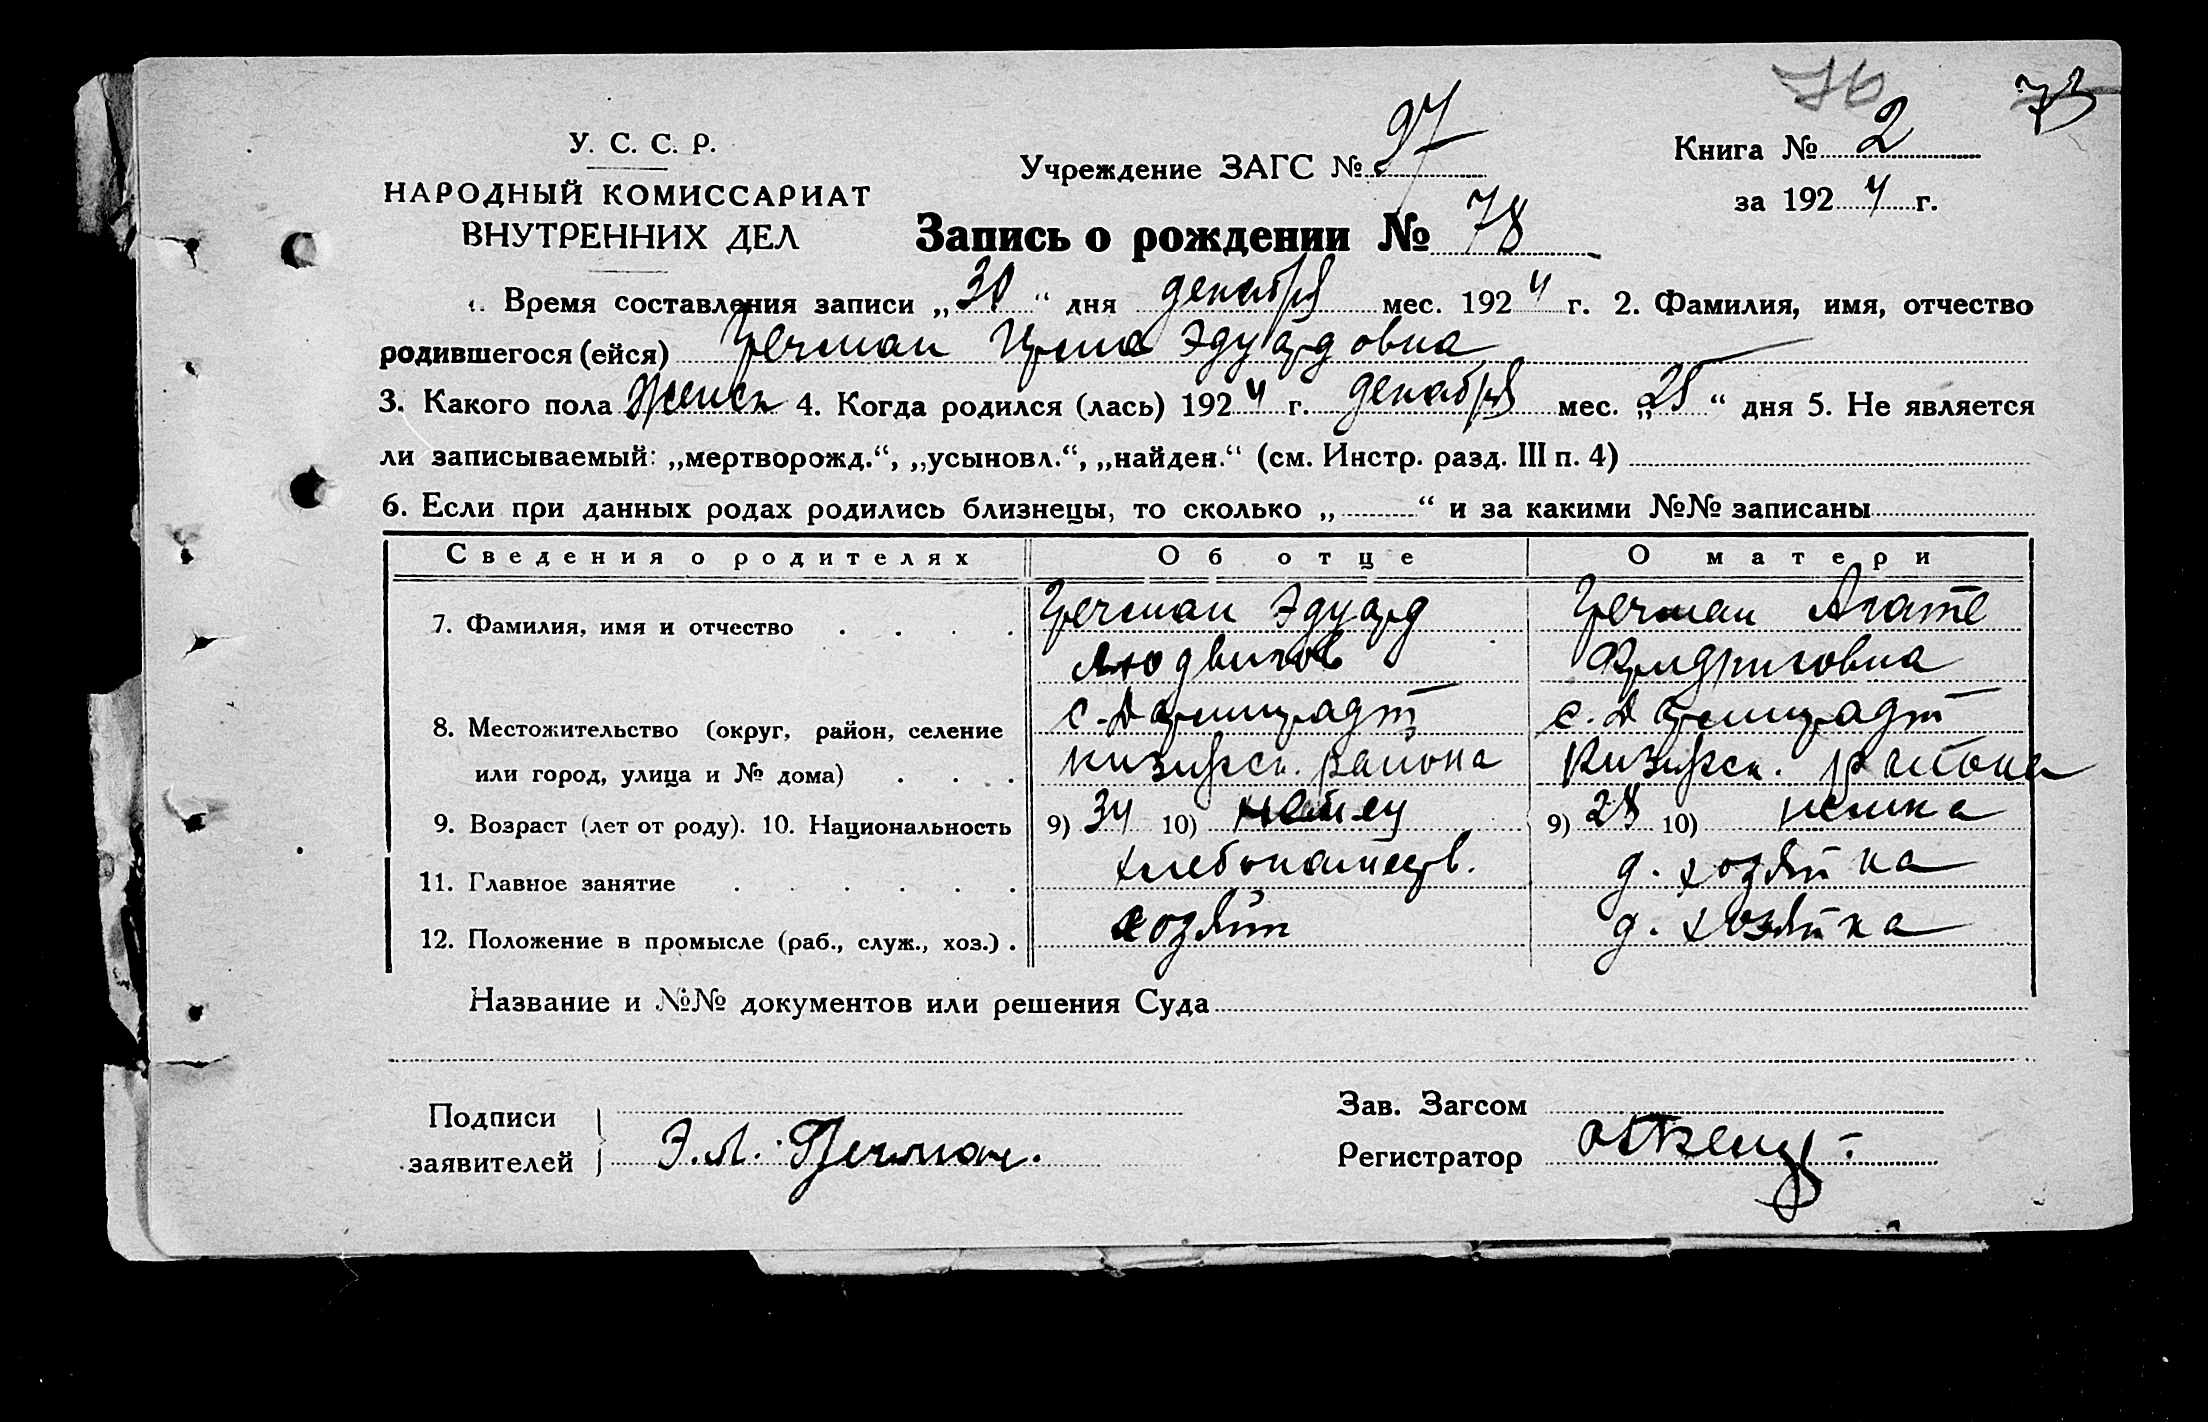 76 73
У. С. С. Р.
НАРОДНЫЙ КОМИССАРИАТ
ВНУТРЕННИХ ДЕЛ
Учреждение ЗАГС № 97
Книга № 2
за 1924 г.
Запись о рождении № 78
1. Время составления записи „30“ дня декабря мес. 1924 г. 2. Фамилия, имя, отчество
родившегося (ейся) Эдуардовна
3. Какого пола женск 4. Когда родился (лась) 1924 г. декабря мес. „25“ дня 5. Не является
ли записываемый: „мертворожд.“, „усыновл.“, „найден.“ (см. Инстр. разд. III п. 4)
6. Если при данных родах родились близнецы, то сколько „ “ и за какими №№ записаны
Сведения о родителях Об отце О матери
7. Фамилия, имя и отчество Эдуард Агате
Людвигов Фридриговна
8. Местожительство (округ, район, селение
или город, улица и № дома) района района
9. Возраст (лет от роду). 10. Национальность 9) 34 10) немец 9) 28 10) немка
11. Главное занятие д. хозяйка
12. Положение в промысле (раб., служ., хоз.) хозяин д. хозяйка
Название и №№ документов или решения Суда
Подписи
заявителей Э. Л.
Зав. Загсом
Регистратор